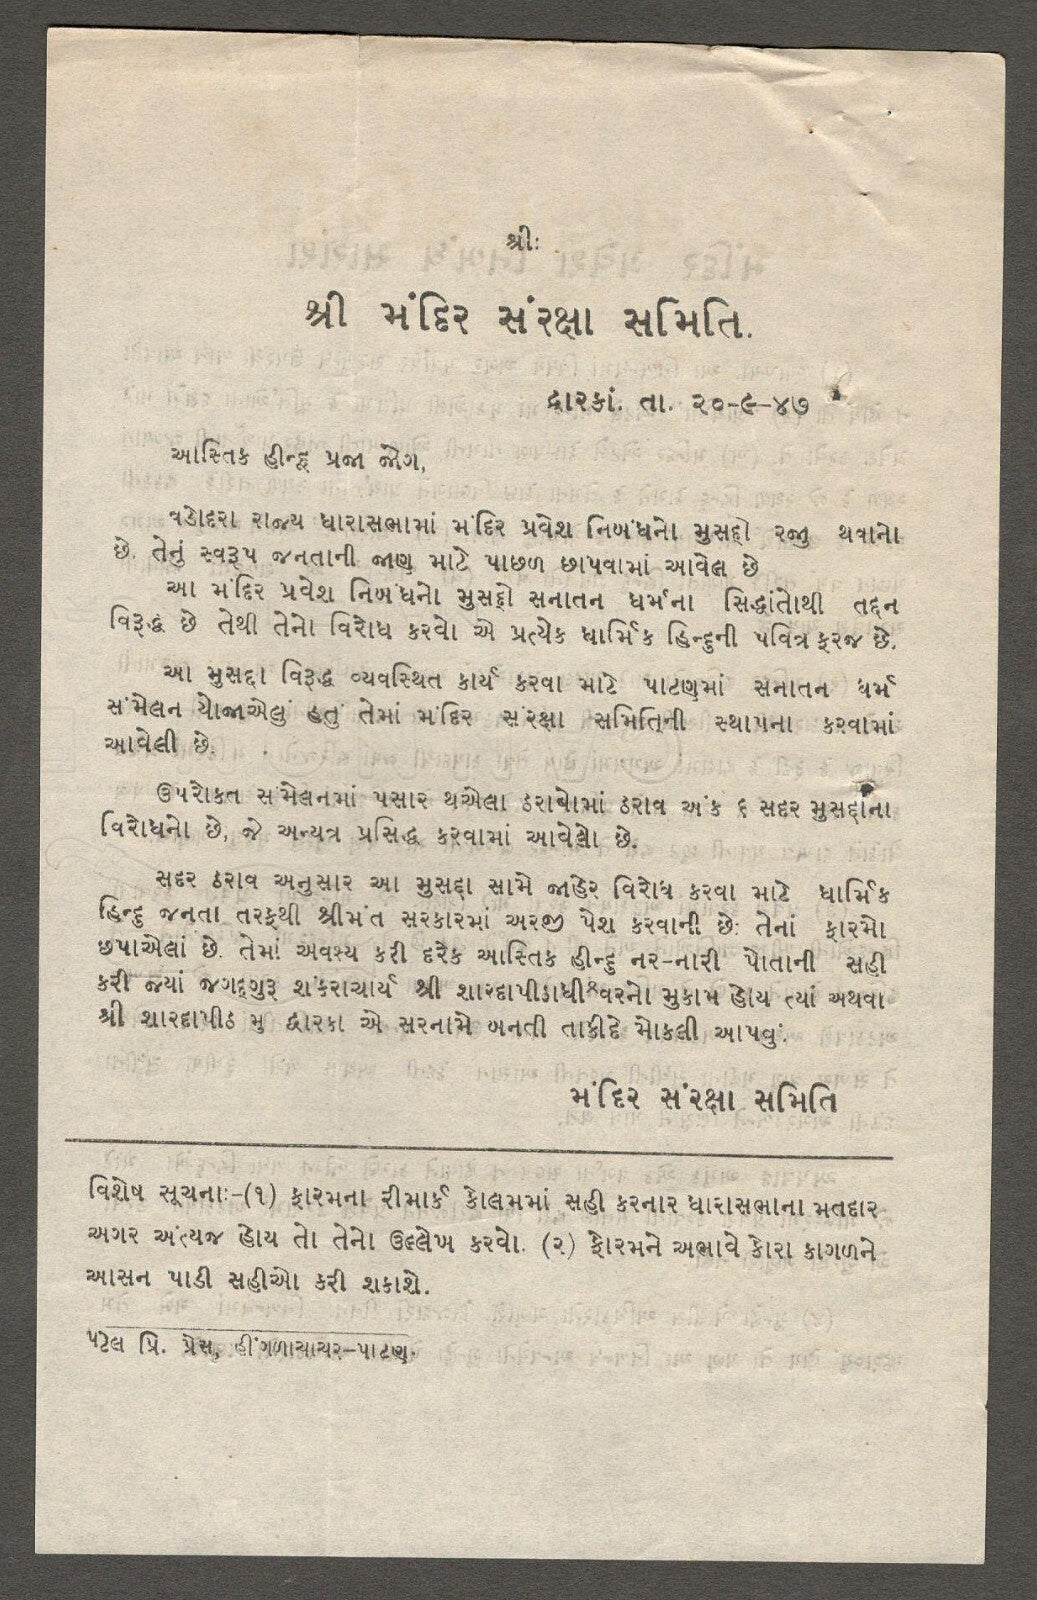 શ્રીઃ
શ્રી મંદિર સંરક્ષા સમિતિ.
દ્વારકાં. તા. ૨૦-૯-૪૭
આસ્તિક હીન્દૂ પ્રજા જોગ,
વડોદરા રાજ્ય ધારાસભામાં મંદિર પ્રવેશ નિબંધનો મુસદ્દો રજી થવાનો
છે. તેનું સ્વરૂપ જનતાની જાણ માટે પાછળ છાપવામાં આવેલ છે
આ મંદિર પ્રવેશ નિબંધનો મુસદ્દો સનાતન ધર્મના સિદ્ધાંતોથી તદ્દન
વિરૂદ્ધ છે તેથી તેનો વિરોધ કરવો એ પ્રત્યેક ધાર્મિક હિન્દુની પવિત્ર ફરજ છે.
આ મુસદ્દા વિરૂદ્ધ વ્યવસ્થિત કાર્ય કરવા માટે પાટણમાં સનાતન ધર્મ
સંમેલન યોજાએલું હતું તેમાં મંદિર સંરક્ષા સમિતિની સ્થાપના કરવામાં
આવેલી છે.
ઉપરોકત સંમેલનમાં પસાર થએલા ઠરાવોમાં ઠરાવ અંક ૬ સદર મુસદ્દાના
વિરોધનો છે, જે અન્યત્ર પ્રસિદ્ધ કરવામાં આવેલો છે.
સદર ઠરાવ અનુસાર આ મુસદ્દા સામે જાહેર વિરોધ કરવા માટે ધાર્મિક
હિન્દુ જનતા તરફથી શ્રીમંત સરકારમાં અરજી પેશ કરવાની છે: તેનાં ફારમો
છપાએલાં છે. તેમાં અવશ્ય કરી દરેક આસ્તિક હીન્દુ નર-નારી પોતાની સહી
કરી જ્યાં જગદ્ગુરૂ શંકરાચાર્ય શ્રી શારદાપીઠાધીશ્વરનો મુકામ હોય ત્યાં અથવા
શ્રી શારદાપીઠ મુ દ્વારકા એ સરનામે બનતી તાકીદે મોકલી આપવું.
મંદિર સંરક્ષા સમિતિ
વિશેષ સૂચના:-(૧) ફારમના રીમાર્ક કોલમમાં સહી કરનાર ધારાસભાના મતદાર
અગર અંત્યજ હોય તો તેનો ઉલ્લેખ કરવો. (૨) ફોરમને અભાવે કોરા કાગળને
આસન પાડી સહીઓ કરી શકાશે.
પટેલ પ્રિ. પ્રેસ, હીંગળાચાચર-પાટણ.